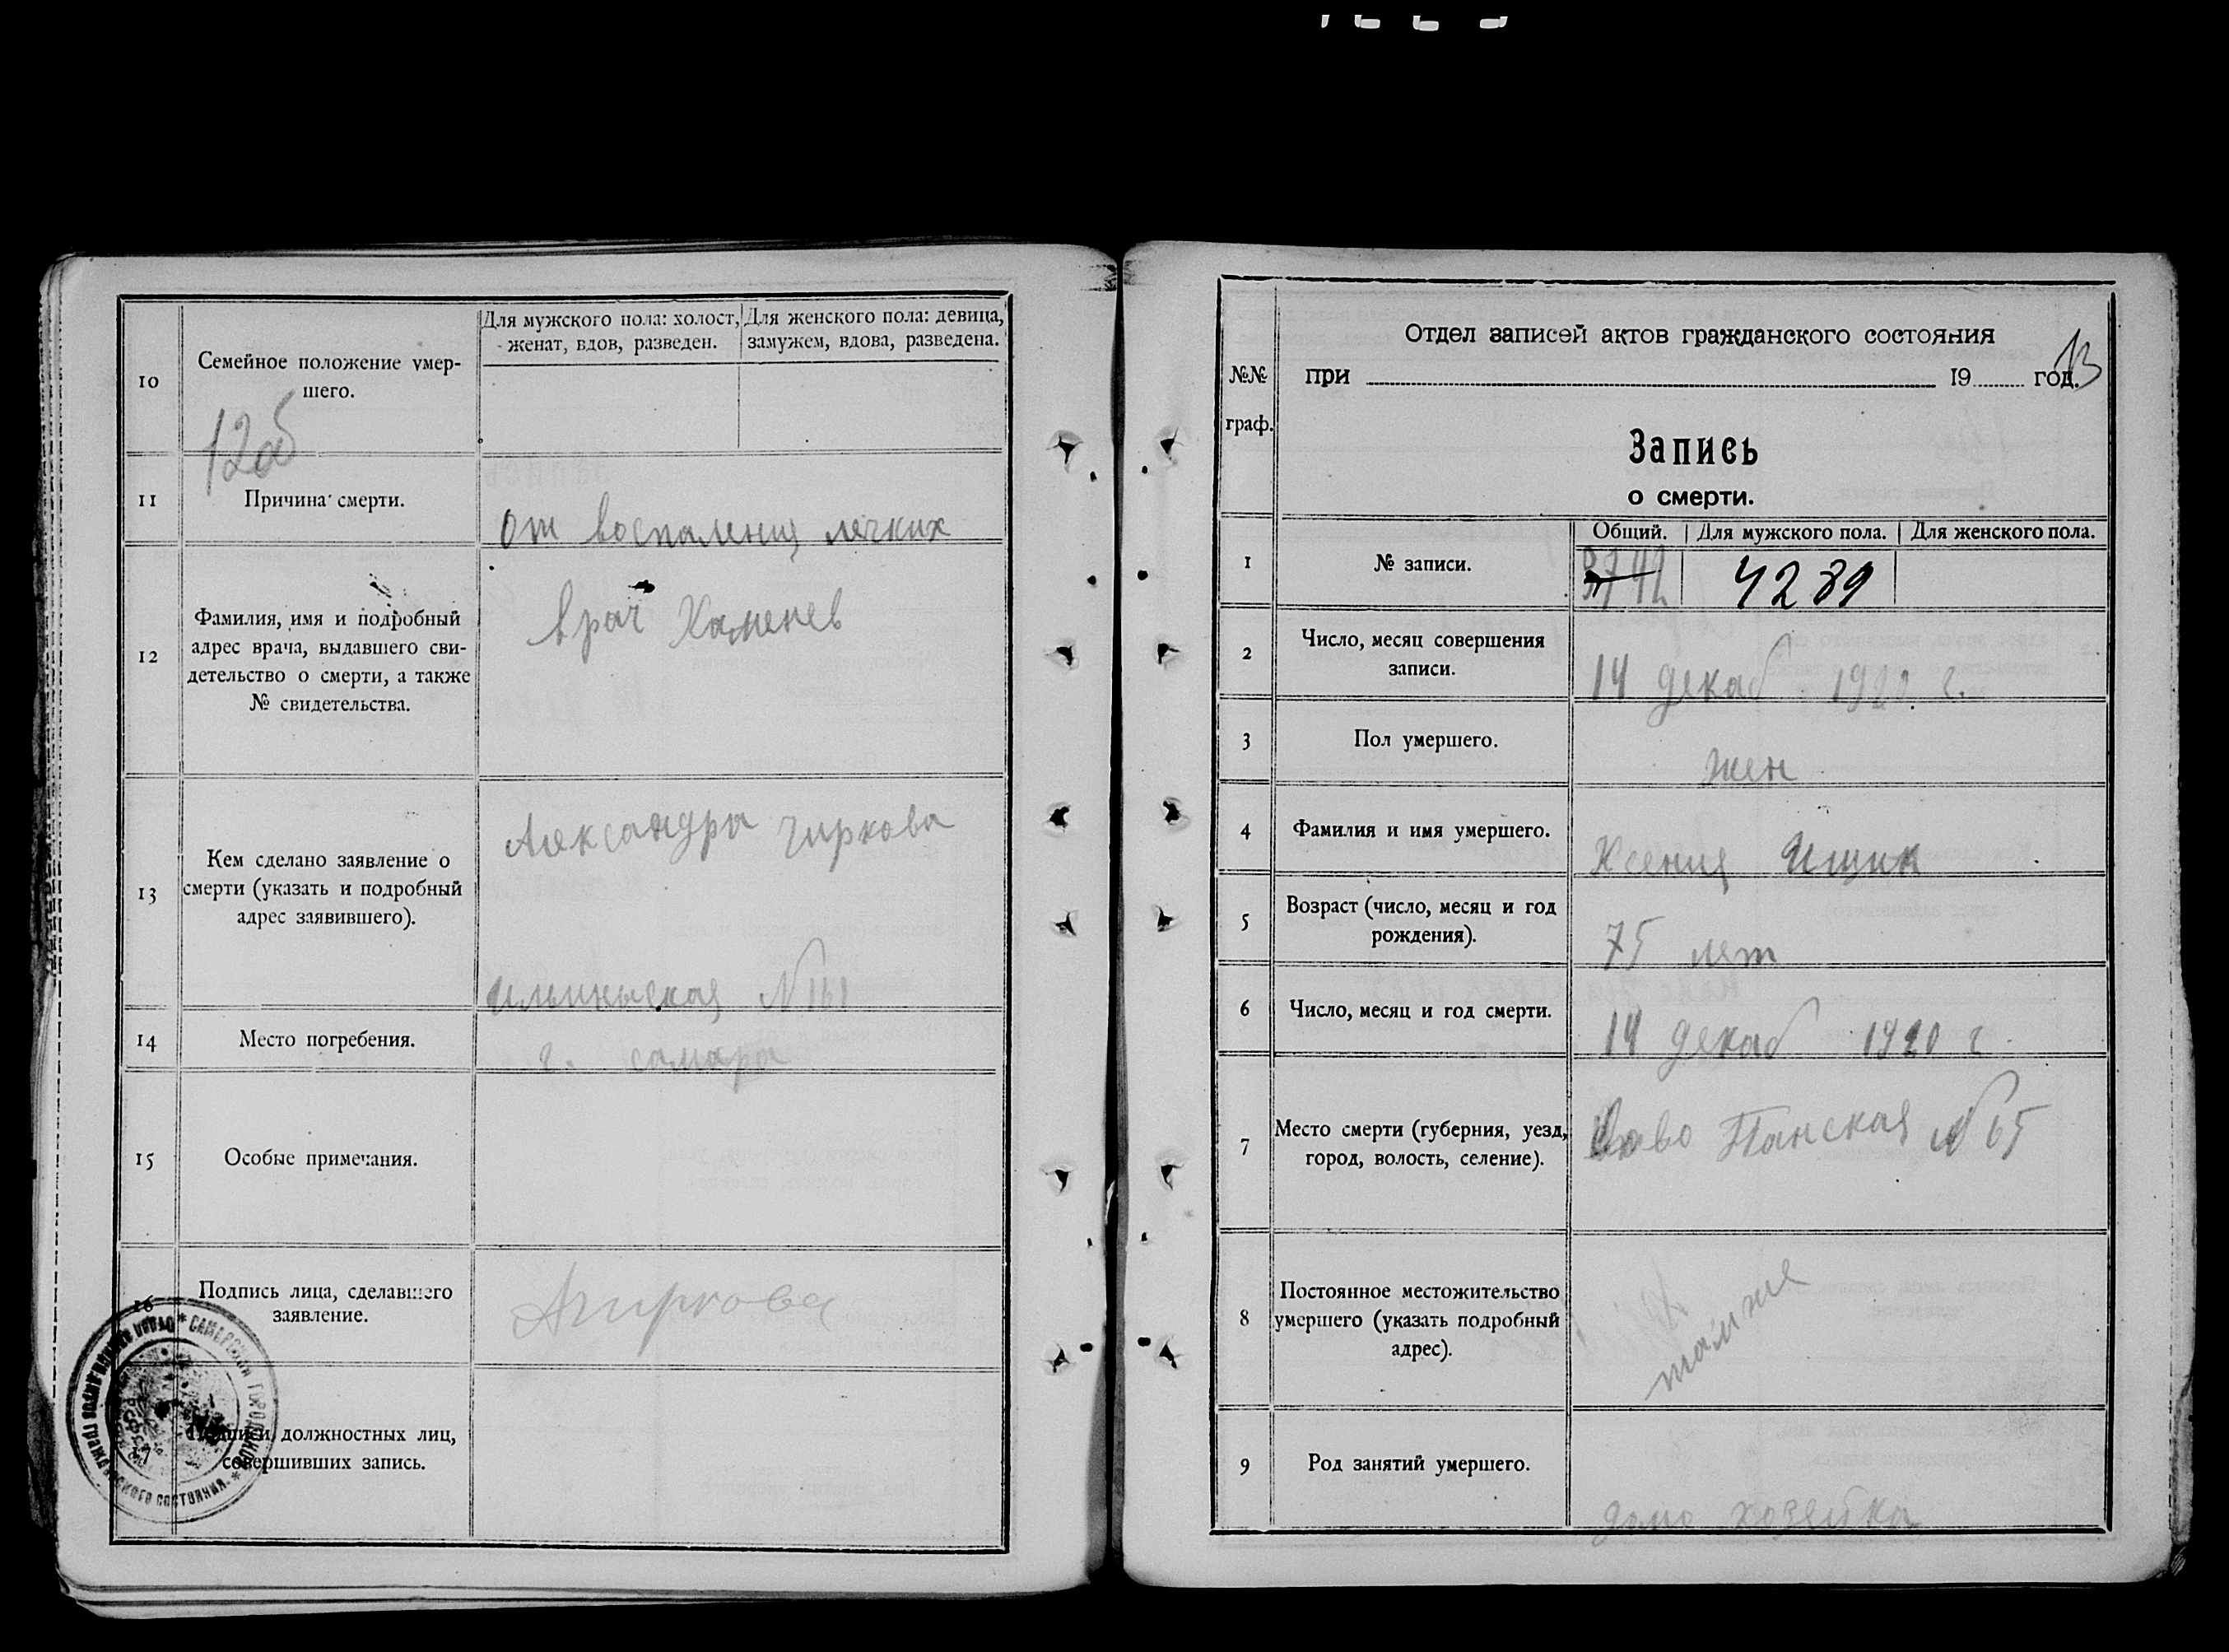 10
Семейное положение умер-
шего.
Для мужского пола: холост,
женат, вдов, разведен.
Для женского пола: девица,
замужем, вдова, разведена.
12об
11
Причина смерти.
От воспаления легких
12
Фамилия, имя и подробный
адрес врача, выдавшего сви-
детельство о смерти, а также
№ свидетельства.
Врач Каменев
13
Кем сделано заявление о
смерти (указать и подробный
адрес заявившего).
Александра Чиркова
Ильинская №
14
Место погребения.
г. самара
15
Особые примечания.
16
Подпись лица, сделавшего
заявление.
АЧиркова
17
Подписи должностных лиц,
совершивших запись.
13
№№
граф.
Отдел записей актов гражданского состояния
при 19 год.
Запись
о смерти.
1
№ записи.
Общий. Для мужского пола. Для женского пола.
4289
2
Число, месяц совершения
записи.
14 декаб 1920 г.
3
Пол умершего.
жен
4
Фамилия и имя умершего.
Ксения Ищик
5
Возраст (число, месяц и год
рождения).
75 лет
6
Число, месяц и год смерти.
14 декаб 1920 г
7
Место смерти (губерния, уезд,
город, волость, селение).
Панская № 65
8
Постоянное местожительство
умершего (указать подробный
адрес).
там же
9
Род занятий умершего.
домо хозяйка